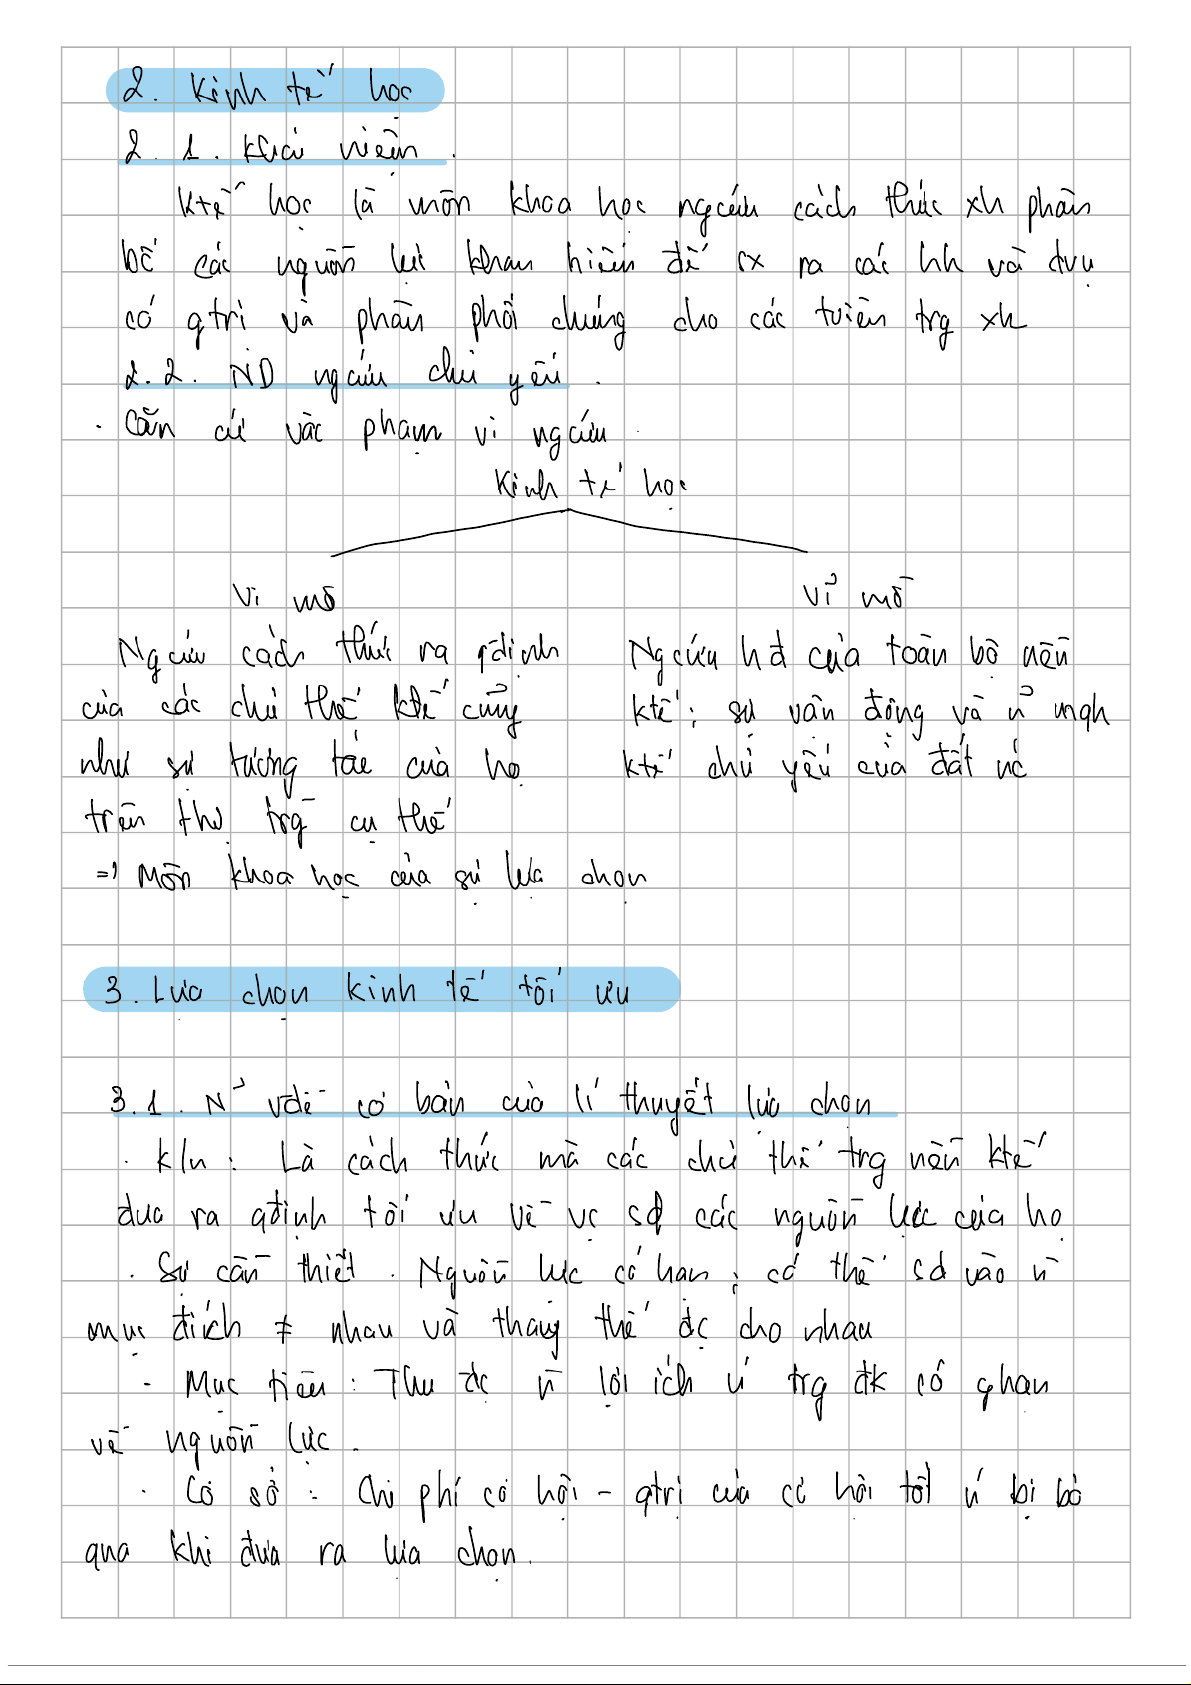 2. Kinh tế học
2.1. Khái niệm.
Ktế học là môn khoa học ngcứu cách thức xh phân
bổ các nguồn lực khan hiếm để sx ra các hh và dvụ
có gtrị và phân phối chúng cho các tviên trg xh
2.2. ND ngcứu chủ yếu.
. Căn cứ vào phạm vi ngcứu
Kinh tế học
Vi mô
Vĩ mô
Ngcứu cách thức ra qđịnh
của các chủ thể ktế cũng
như sự tương tác của họ
trên thị trg cụ thể
Ngcứu hđ của toàn bộ nền
ktế; sự vận động và
ktế chủ yếu của đất nc
=> Môn khoa học của sự lựa chọn
3. Lựa chọn kinh tế tối ưu
3.1. N² vđề cơ bản của lí thuyết lựa chọn
. k/n: Là cách thức mà các chủ thể trg nền ktế
đưa ra qđịnh tối ưu về vc sd các nguồn lực của họ
. Sự cần thiết. Nguồn lực có hạn; có thể sd vào n
mục đích ≠ nhau và thay thế đc cho nhau
. Mục tiêu: Thu đc n lợi ích n trg đk có ghạn
về nguồn lực.
. Cơ sở: Chi phí cơ hội - gtrị của cơ hội tốt n bị bỏ
qua khi đưa ra lựa chọn.